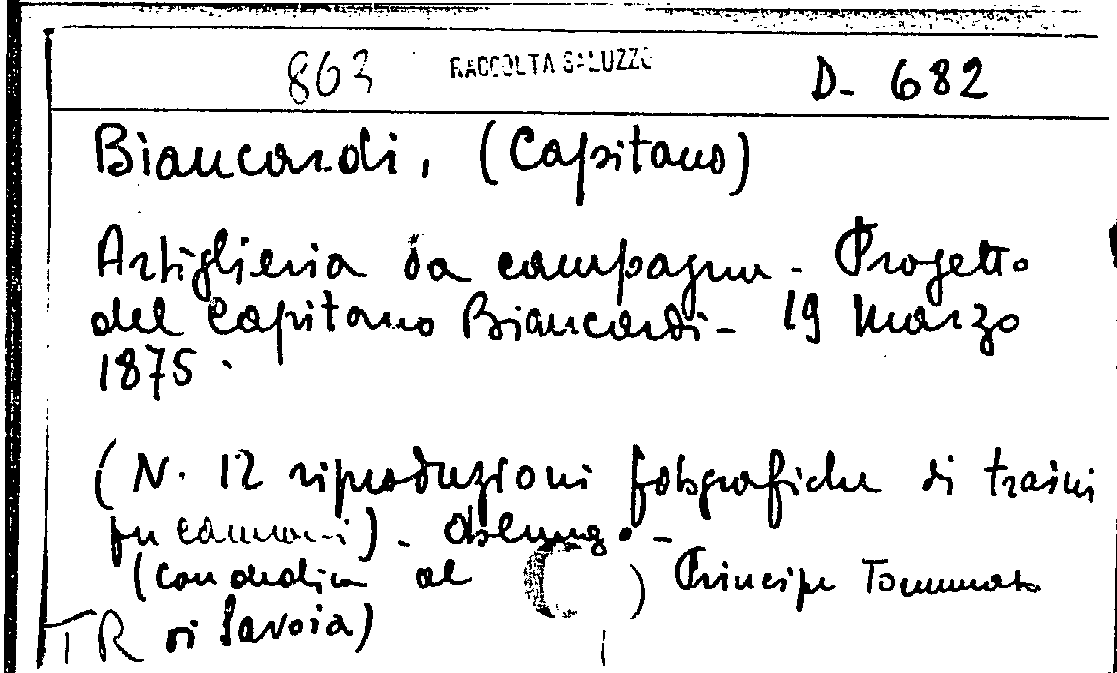 863 RACCOLTA SALUZZO D- 682
Biancardi, (Capitano)
Artiglieria da campagna - Progetto
del Capitano Biancardi - 19 Marzo
1875.
(N. 12 riproduzioni fotografiche di traini
per cannoni) -
(con dedica al ) Principe Tommaso
TR di Savoia)